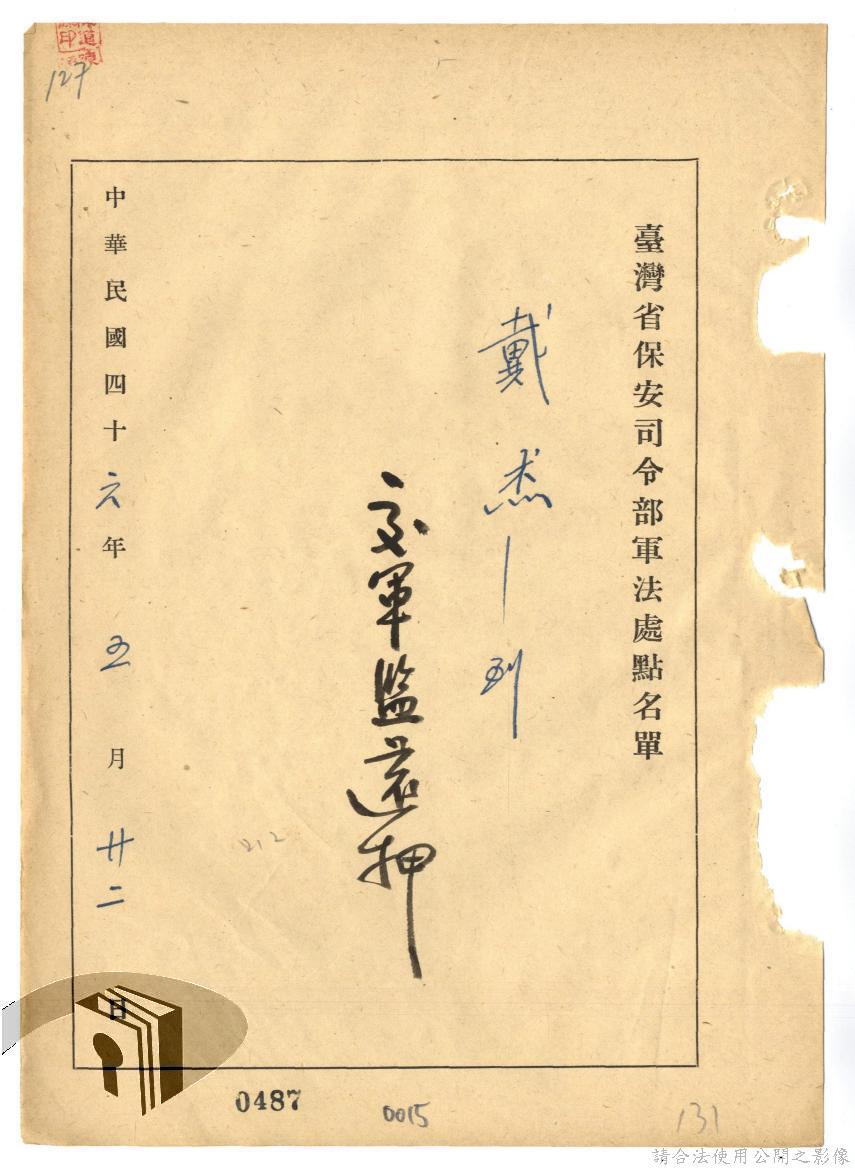 127
臺灣省保安司令部軍法處點名單
戴杰 到
交軍監還押
中華民國四十六年五月廿二日
212
0487
0015
131
請合法使用公開之影像